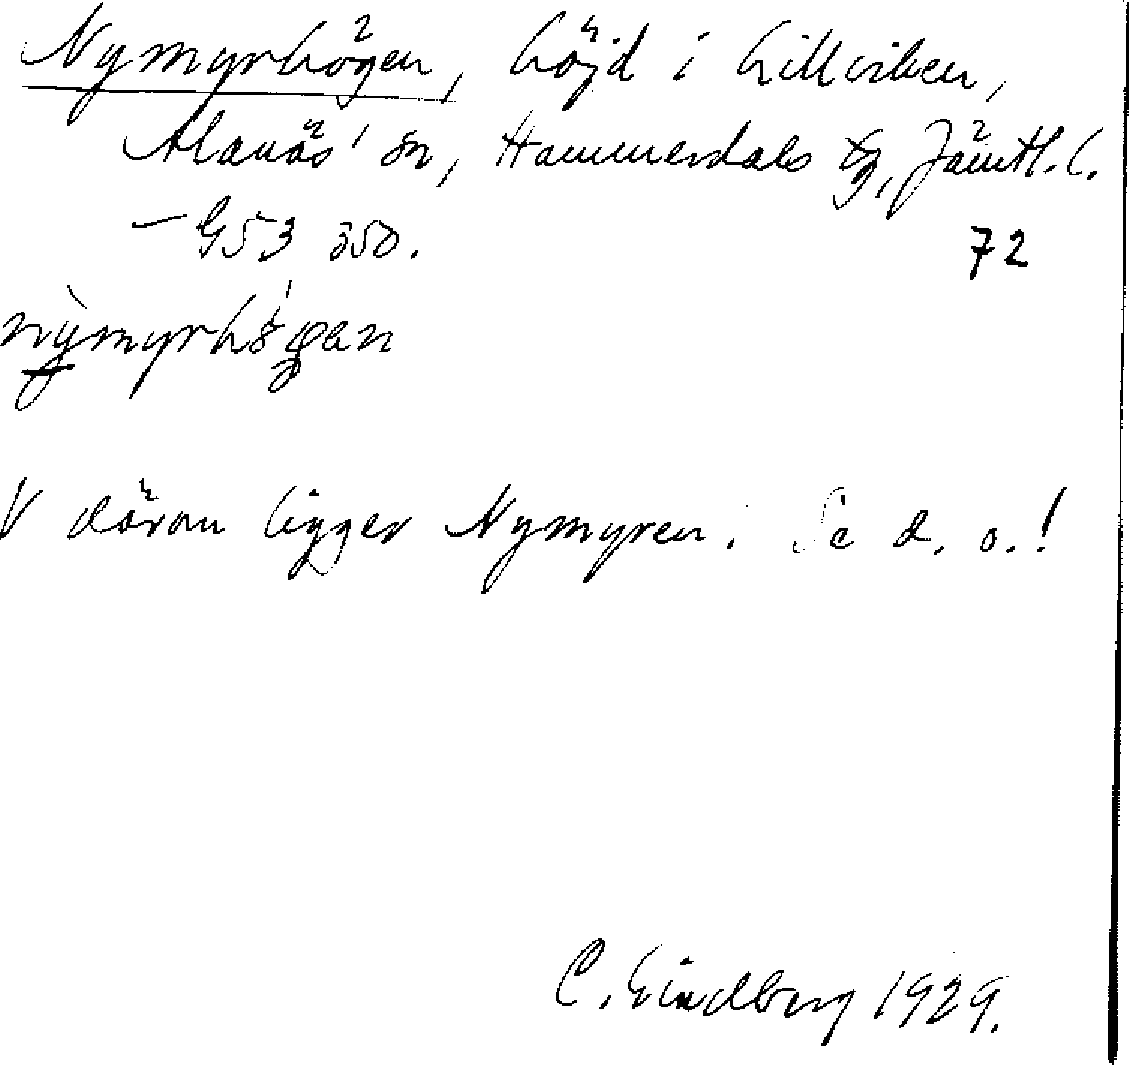 Nymyrhögen, höjd i Lillviken,
Alanäs' sn, Hammerdals tg, Jämtl. l.
– G53 350. 72
nỳmyrhǿgen
V däron ligger Nymyren. Se d. o.!
C. Lindberg 1929.